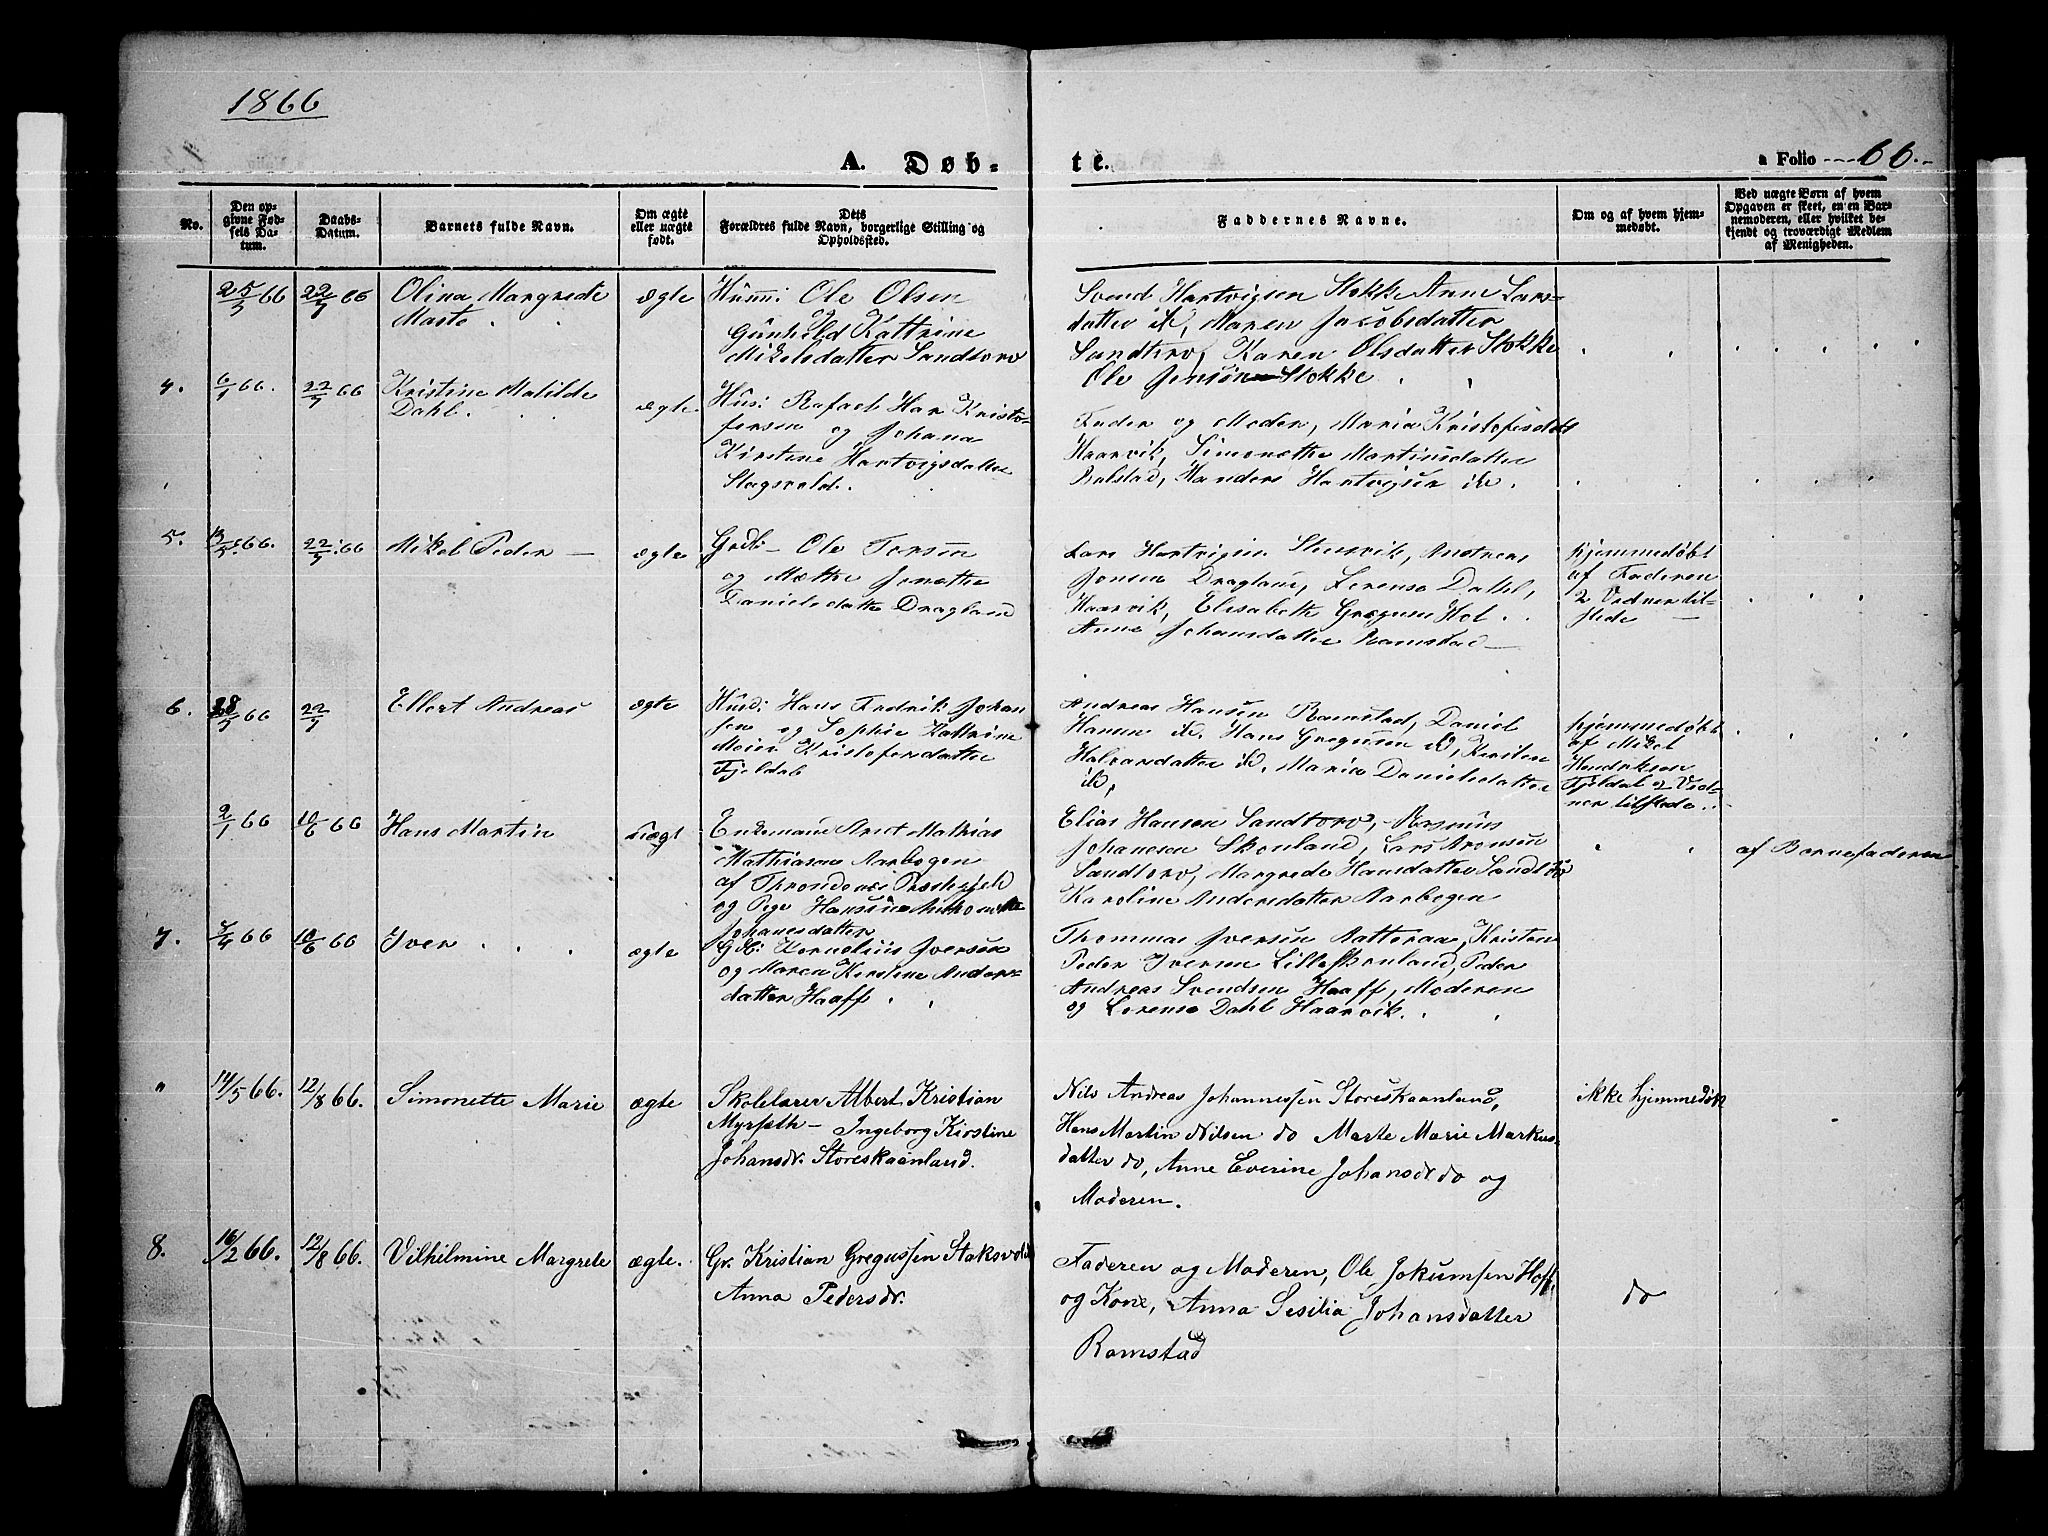 1866
A. Døb-
te.
a Folio 66.
No.
Den op-
givne Fød-
sels Da-
tum.
Daabs-
Datum.
Barnets fulde Navn.
Om ægte
eller uægte
født.
Dets
Forældres fulde Navn, borgerlige Stilling og
Opholdssted.
Faddernes Navne.
Om og af hvem hjem-
medøbt.
Ved uægte Børn af hvem
Opgaven er skeet, en en Bar-
nemoderen, eller hvilket be-
kjendt og troværdigt Medlem
af Menigheden.
25/5 66
22/7 66
Olina Margrede
Marte
ægte
Huum: Ole Olsen
og
Gunhild Kattrine
Mikelsdatter Sandtorv
Svend Hartvigsen Stokke Anne Lars-
datter ib, Maren Jacobsdatter
Sandtorv, Karen Olsdatter Stokke
Ole Jenssøn Stokke
4.
6/1 66.
22/7 66
Kristine Matilde
Dahl.
ægte
Hus: Rafael Har Kristo-
fersen og Johana
Kirstine Hartvigsdatter
Stagsvold.
Fader og Moder, Maria Kristofersdatt
Haarvik, Simonette Martinusdatter
Hartvigsen ib.
5.
22/7 66
Mikal Peder
ægte
Grdb: Ole Torsen
og Mætte Jenette
Danielsdatter Dragland
Lars Hartvigsen Stensvik, Andreas
Jonsen Dragland, Lorense Dahl,
Haarvik, Elisabeth Gregusen Hol.
Anne Johansdatter Ramstad
Hjemmedøbt
af Faderen
2 Vidner til-
stede
6.
28/5 66
22/7
Ellert Andreas
ægte
Husb: Hans Fredrik Johan
sen og Sophie Kattrine
Meier Kristofersdatter
Fjeldal
Andreas Hansen Ramstad, Daniel
Hansen ib, Hans Gregusen ib, Kirsten
Halvardatter ib, Maria Danielsdatter
ib,
hjemmedøbt
af Mikal
Hendriksen
Fjeldal 2 Vid-
ner tilstede.
2/1 66
10/6 66
Hans Martin
uægt
Enkemand Arnt Mathias
Mathiasen Aarbogen
af Throndenes Prestegjeld
og Pige Hansine Antonette
Johanesdatter
Elias Hansen Sandtorv, Rasmus
Johanesen Skonland, Lars Aronsen
Sandtorv, Margrede Hansdatter Sandtorv
Karoline Andersdatter Aarbogen
af Barnefaderen
7.
3/4 66
10/6 66
Iver
ægte
Gdb: Kornelius Iversen
og Maren Kirstine Anders-
datter Haaff
Thommas Iversen Ratteraa, Kristen
Peder Iversen Lilleskonland, Peder
Andreas Svendsen Haaff, Moderen
og Lorense Dahl Haarvik.
"
14/5 66.
12/8 66.
Simonette Marie
ægte
Skolelærer Albert Kristian
Myrseth - Ingeborg Kirstine
Johansdr. Storeskaanland.
Nils Andreas Johannessen Storeskaanland,
Hans Martin Nilsen do Marte Marie Markus-
datter do, Anne Everine Johansdr do og
Moderen.
ikke hjemmedøbt
8.
16/2 66.
12/8 66.
Vilhilmine Margrete
ægte.
Gr. Kristian Gregussen Staksvold
Anna Pedersdr.
Faderen og Moderen, Ole Jokumsen Hoff,
og Kone, Anna Sesilia Johansdatter
Ramstad
do